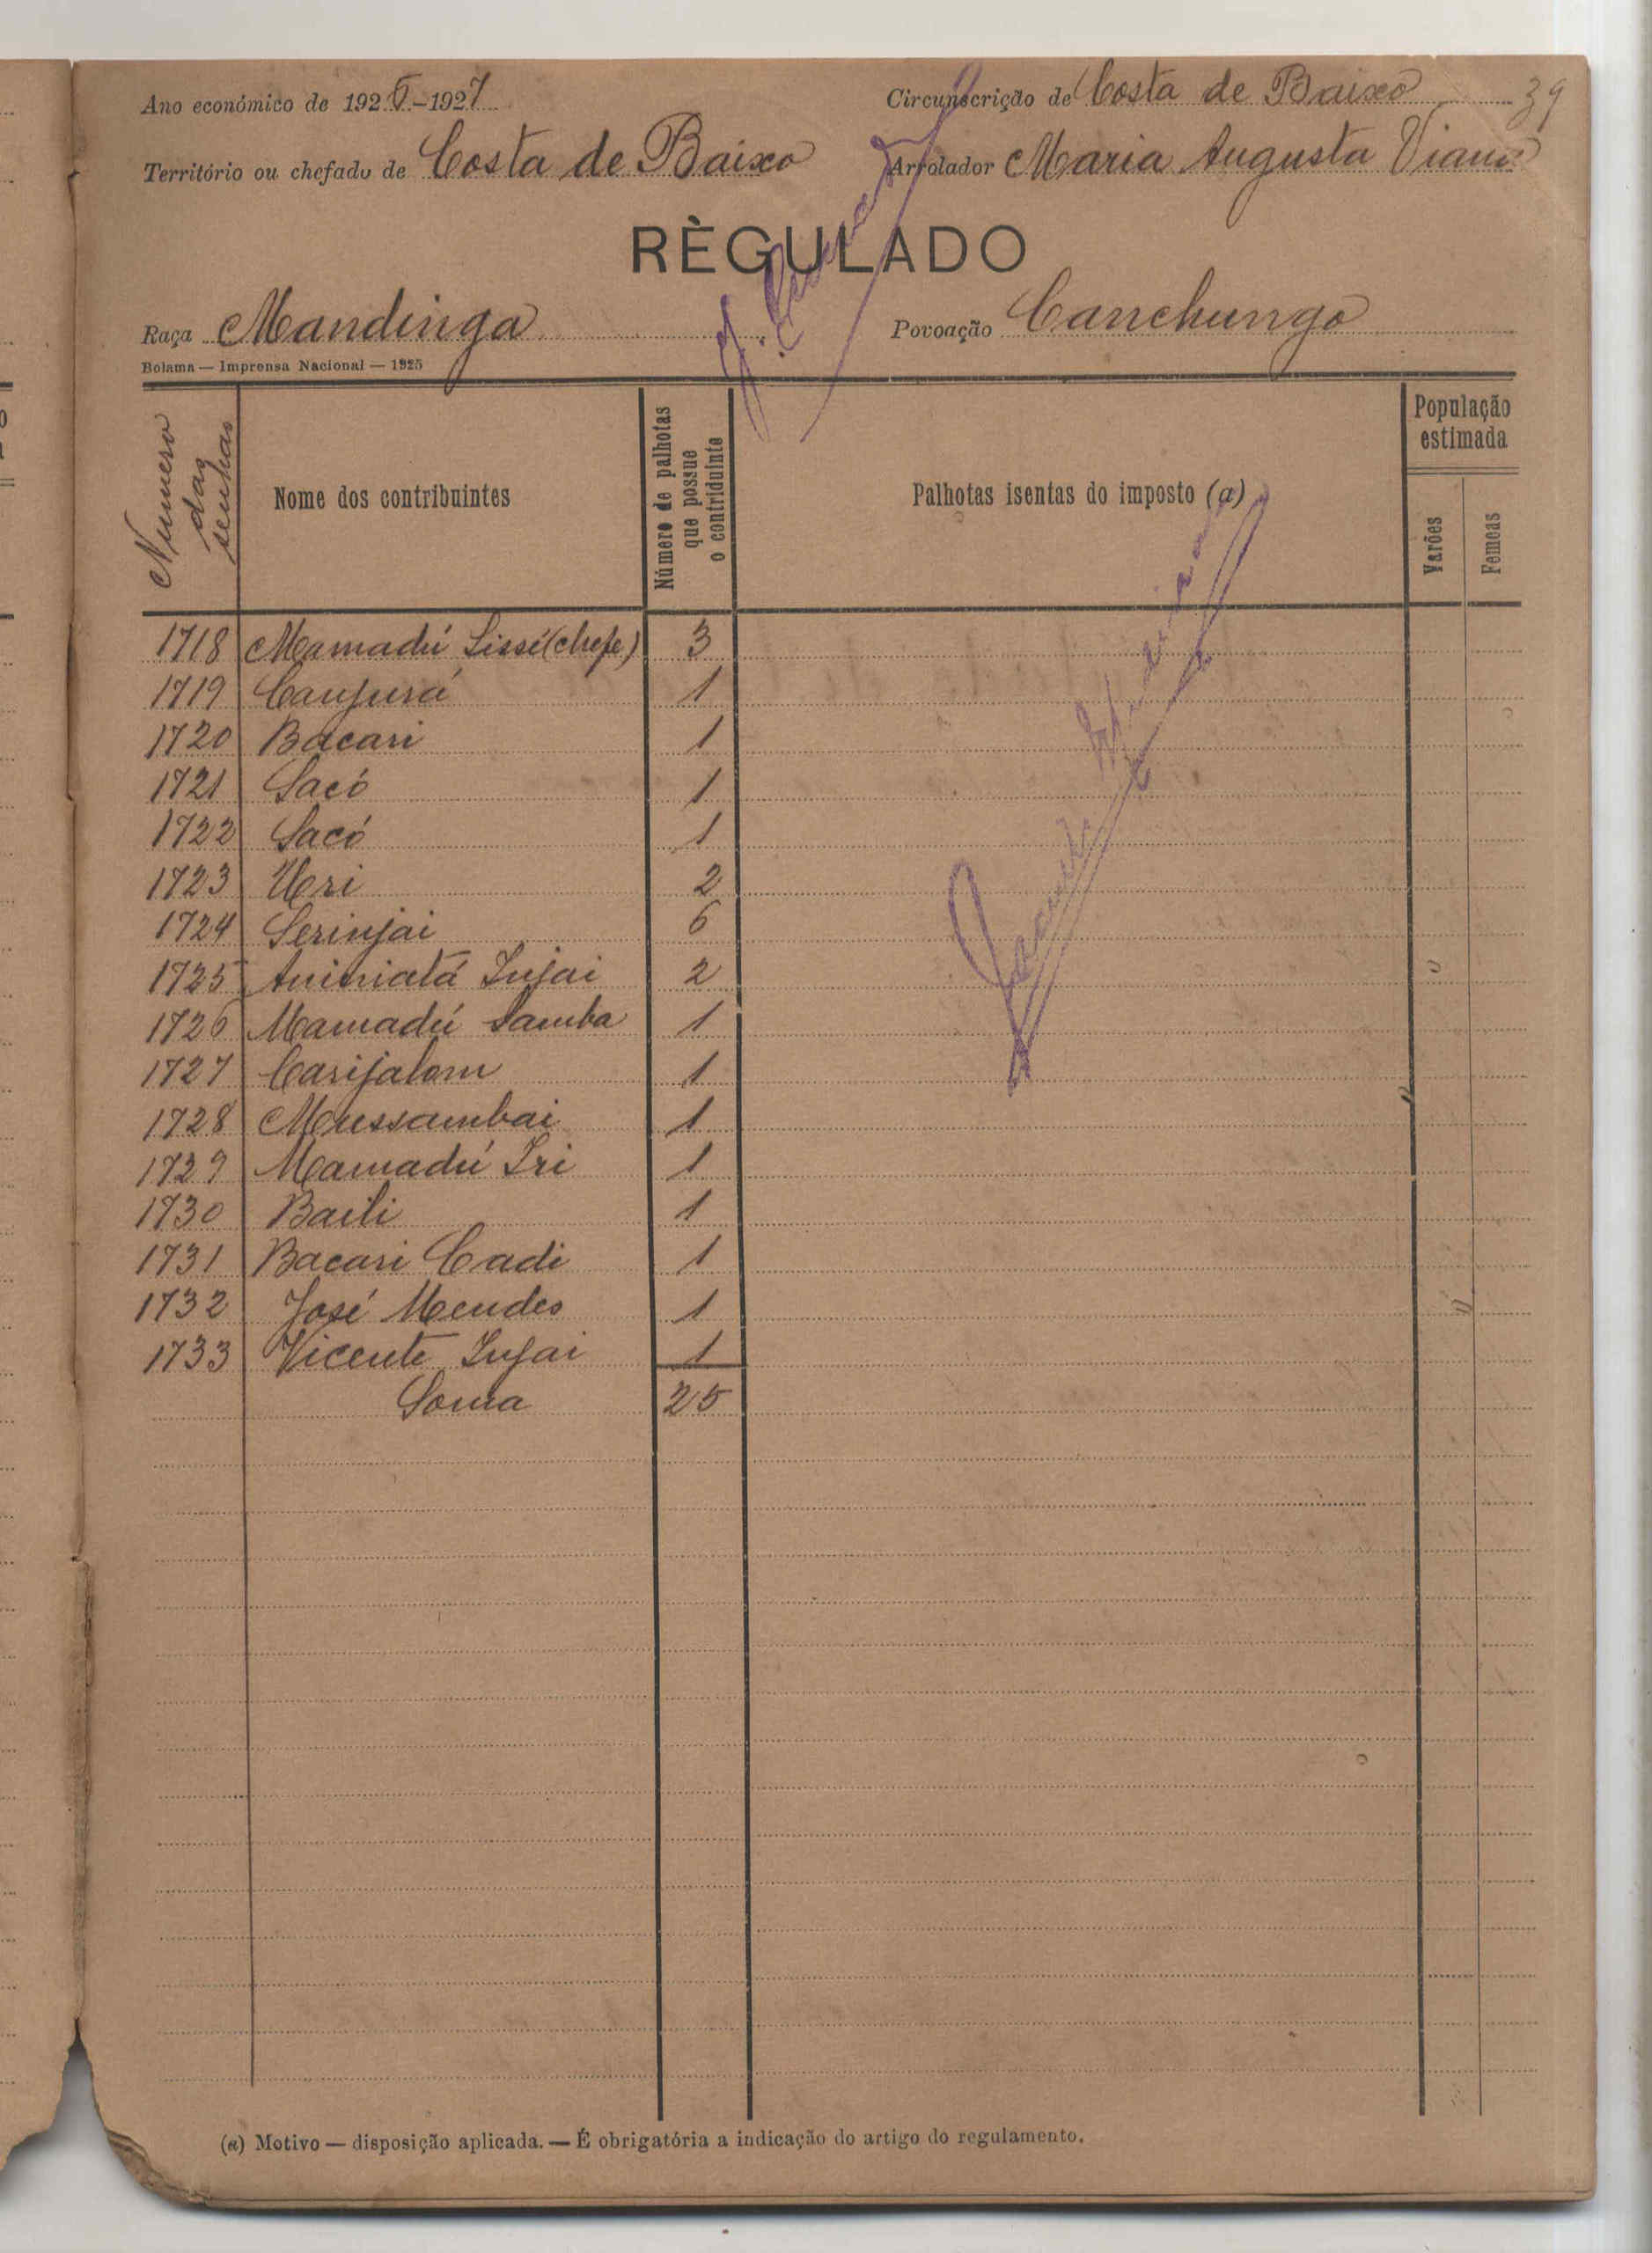 Ano económico de 1926-1927
Circunscrição de Costa de Baixo
39
Território ou chefado de Costa de Baixo
Arrolador Maria Augusta Viana
RÈGULADO
Raça Mandinga
Povoação Canchungo
Bolama — Imprensa Nacional — 1925
Numero das senhas
Nome dos contribuintes
Número de palhotas que possue o contriduinte
Palhotas isentas do imposto (a)
População estimada
Varões
Femeas
1718 Mamadú Sissé (chefe) 3
1719 Canjurá 1
1720 Bacari 1
1721 Sacó 1
1722 Sacó 1
1723 Uri 2
1724 Serinjai 6
1725 Injai 2
1726 Mamadú Samba 1
1727 Carijalom 1
1728 Mussambai 1
1729 Mamadú Iri 1
1730 Baili 1
1731 Bacari Cadi 1
1732 José Mendes 1
1733 Vicente Injai 1
Soma 25
(a) Motivo — disposição aplicada. — É obrigatória a indicação do artigo do regulamento.